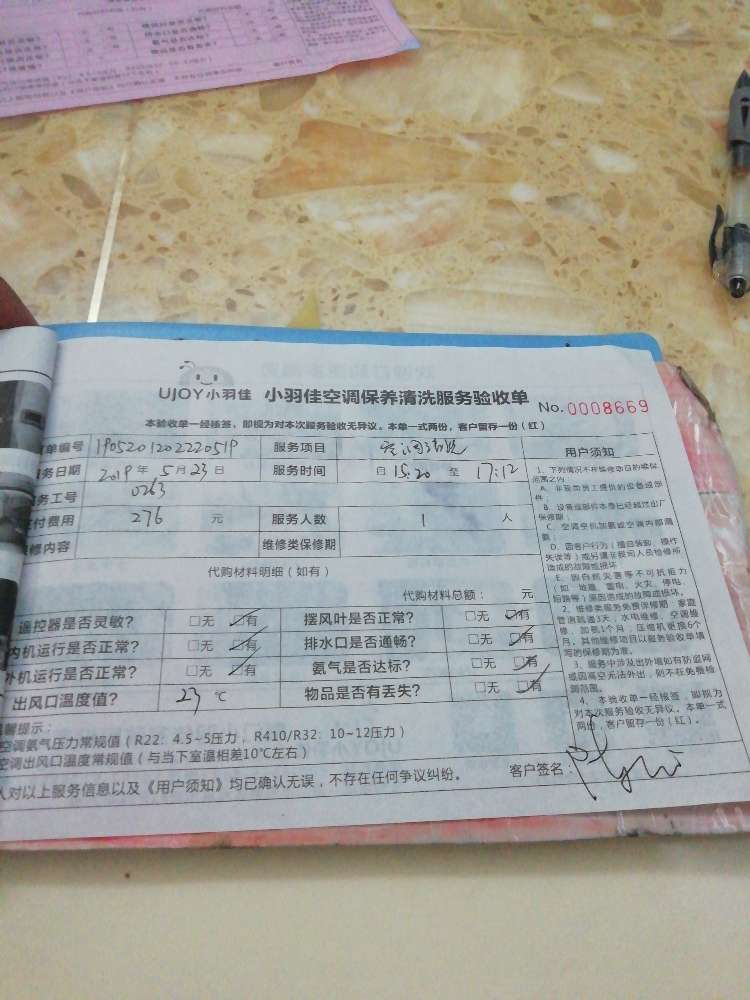 UJOY小羽佳 小羽佳空调保养清洗服务验收单 No.0008669
本验收单一经核签，即视为对本次服务验收无异议。本单一式两份，客户留存一份（红）
单编号 1905201202220519 服务项目 空调清洗
务日期 2019年5月23日 服务时间 自15:20至17:12
务工号 0263
付费用 276 元 服务人数 1 人
修内容 维修类保修期
代购材料明细（如有）
代购材料总额： 元
遥控器是否灵敏？ □无 □有 摆风叶是否正常？ □无 □有
内机运行是否正常？ □无 □有 排水口是否通畅？ □无 □有
外机运行是否正常？ □无 □有 氨气是否达标？ □无 □有
出风口温度值？ 23 ℃ 物品是否有丢失？ □无 □有
提示：
空调氨气压力常规值（R22：4.5~5压力，R410/R32：10~12压力）
空调出风口温度常规值（与当下室温相差10℃左右）
人对以上服务信息以及《用户须知》均已确认无误，不存在任何争议纠纷。 客户签名：
用户须知
1、下列情况不在维修项目的维保范围之内
A、非我司员工提供的设备或部件；
B、设备或部件本身已经超过出厂保修期；
C、空调空机加氨或空调内部漏氨；
D、因客户行为（擅自装卸、操作失误等）或另请非我司人员检修所造成的故障或损坏
E、因自然灾害等不可抗拒力（如：地震、雷电、火灾、停电、短路等）原因造成的故障或损坏。
2、维修类服务免费保修期：家庭管道疏通3天，水电维修、空调维修、加氨1个月，压缩机更换6个月，其他维修项目以服务验收单填写的保修期为准。
3、服务中涉及出外墙如有防盗网或因高空无法外出，则不在免费检测范围。
4、本验收单一经核签，即视为对本次服务验收无异议。本单一式两份，客户留存一份（红）。